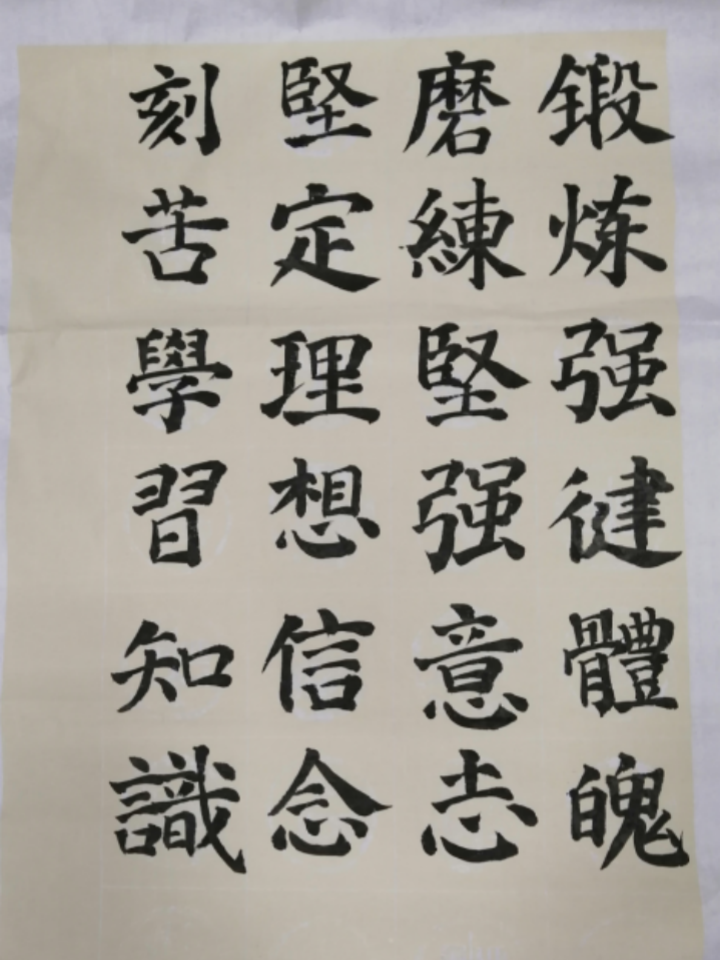 鍛炼强健體魄
磨練堅强意志
堅定理想信念
刻苦學習知識